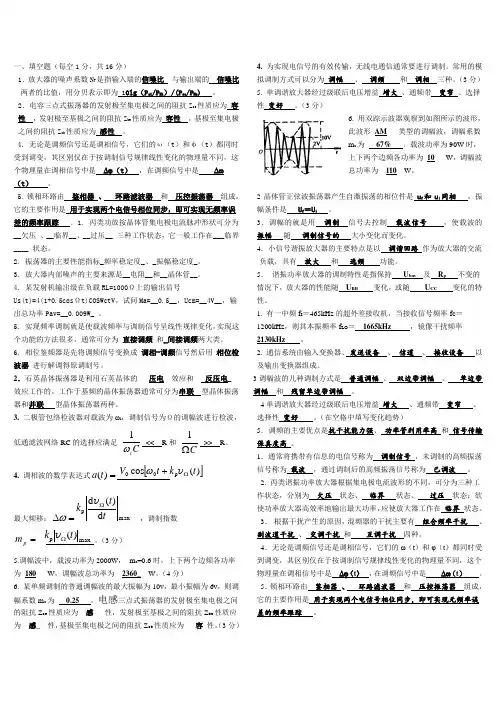 一、填空题(每空1分,共16分)
1.放大器的噪声系数NF是指输入端的信噪比 与输出端的 信噪比
两者的比值,用分贝表示即为 10lg(PSi/Pni)/(PSo/Pno) 。
2.电容三点式振荡器的发射极至集电极之间的阻抗Zce性质应为 容
性 ,发射极至基极之间的阻抗Zbe性质应为 容性 ,基极至集电极
之间的阻抗Zcb性质应为 感性 。
4.无论是调频信号还是调相信号,它们的ω(t)和φ(t)都同时
受到调变,其区别仅在于按调制信号规律线性变化的物理量不同,这
个物理量在调相信号中是 Δφ(t) ,在调频信号中是 Δω
(t) 。
5.锁相环路由 鉴相器 、 环路滤波器 和 压控振荡器 组成,
它的主要作用是 用于实现两个电信号相位同步,即可实现无频率误
差的频率跟踪 。1. 丙类功放按晶体管集电极电流脉冲形状可分为
__欠压__、__临界__、__过压__ 三种工作状态,它一般工作在___临界
____ 状态。
2. 振荡器的主要性能指标_频率稳定度_、_振幅稳定度_。
3. 放大器内部噪声的主要来源是__电阻__和__晶体管__。
4. 某发射机输出级在负载RL=1000Ω上的输出信号
Us(t)=4(1+0.5cosΩt)COSWctV。试问Ma=__0.5__,Ucm=__4V__,输
出总功率Pav=__0.009W_ 。
5. 实现频率调制就是使载波频率与调制信号呈线性规律变化,实现这
个功能的方法很多,通常可分为 直接调频 和 间接调频两大类。
6. 相位鉴频器是先将调频信号变换成 调相-调频信号然后用 相位检
波器 进行解调得原调制号。
2.石英晶体振荡器是利用石英晶体的 压电 效应和 反压电_
效应工作的,工作于基频的晶体振荡器通常可分为串联 型晶体振荡
器和并联 型晶体振荡器两种。
3. 二极管包络检波器对载波为ωc,调制信号为Ω的调幅波进行检波,
低通滤波网络RC的选择应满足 1/ωcC << R和 1/ΩC >> R。
4. 调相波的数学表达式a(t)=V0cos[ω0t+kpυΩ(t)]
最大频移:Δω=kp|dυΩ(t)/dt|max ,调制指数
mp= kp|υΩ(t)|max。(3分)
5.调幅波中,载波功率为2000W, ma=0.6时,上下两个边频各功率
为 180 W,调幅波总功率为 2360 W。(4分)
6. 某单频调制的普通调幅波的最大振幅为10v,最小振幅为6v,则调
幅系数ma为 0.25 。电感三点式振荡器的发射极至集电极之间
的阻抗Zce性质应为 感 性,发射极至基极之间的阻抗Zbe性质应
为 感 性,基极至集电极之间的阻抗Zcb性质应为 容 性。(3分)
4. 为实现电信号的有效传输,无线电通信通常要进行调制。常用的模
拟调制方式可以分为 调幅 、 调频 和 调相 三种。(3分)
5.单调谐放大器经过级联后电压增益 增大 、通频带 变窄 。选择
性 变好 。(3分)
6.用双踪示波器观察到如图所示的波形,
此波形 AM 类型的调辐波,调辐系数
ma为 67% 。载波功率为90W时,
上下两个边频各功率为 10 W,调辐波
总功率为 110 W。
2晶体管正弦波振荡器产生自激振荡的相位件是 uf和ui同相 ,振
幅条件是 Uf=Ui 。
3.调幅的就是用 调制 信号去控制 载波信号 ,使载波的
振幅 随 调制信号的 大小变化而变化。
4.小信号谐振放大器的主要特点是以 调谐回路 作为放大器的交流
负载,具有 放大 和 选频 功能。
5. 谐振功率放大器的调制特性是指保持 Ubm 及 Rp 不变的
情况下,放大器的性能随 UBB 变化,或随 UCC 变化的特
性。
1. 有一中频fI=465kHz的超外差接收机,当接收信号频率fc=
1200kHz,则其本振频率fLo= 1665kHz ,镜像干扰频率
2130kHz 。
2.通信系统由输入变换器、发送设备 、 信道 、 接收设备 以
及输出变换器组成。
3调幅波的几种调制方式是 普通调幅 、 双边带调幅 、 单边带
调幅 和 残留单边带调幅 。
4单调谐放大器经过级联后电压增益 增大 、通频带 变窄 、
选择性 变好 。(在空格中填写变化趋势)
5.调频的主要优点是抗干扰能力强、 功率管利用率高 和 信号传输
保真度高 。
1.通常将携带有信息的电信号称为 调制信号 ,未调制的高频振荡
信号称为 载波 ,通过调制后的高频振荡信号称为 已调波 。
2.丙类谐振功率放大器根据集电极电流波形的不同,可分为三种工
作状态,分别为 欠压 状态、 临界 状态、 过压 状态;欲
使功率放大器高效率地输出最大功率,应使放大器工作在 临界 状态。
3. 根据干扰产生的原因,混频器的干扰主要有 组合频率干扰 、
副波道干扰 、 交调干扰 和 互调干扰 四种。
4.无论是调频信号还是调相信号,它们的ω(t)和φ(t)都同时受
到调变,其区别仅在于按调制信号规律线性变化的物理量不同,这个
物理量在调相信号中是 Δφ(t) ,在调频信号中是 Δω(t) 。
5.锁相环路由 鉴相器 、 环路滤波器 和 压控振荡器 组成,
它的主要作用是 用于实现两个电信号相位同步,即可实现无频率误
差的频率跟踪 。